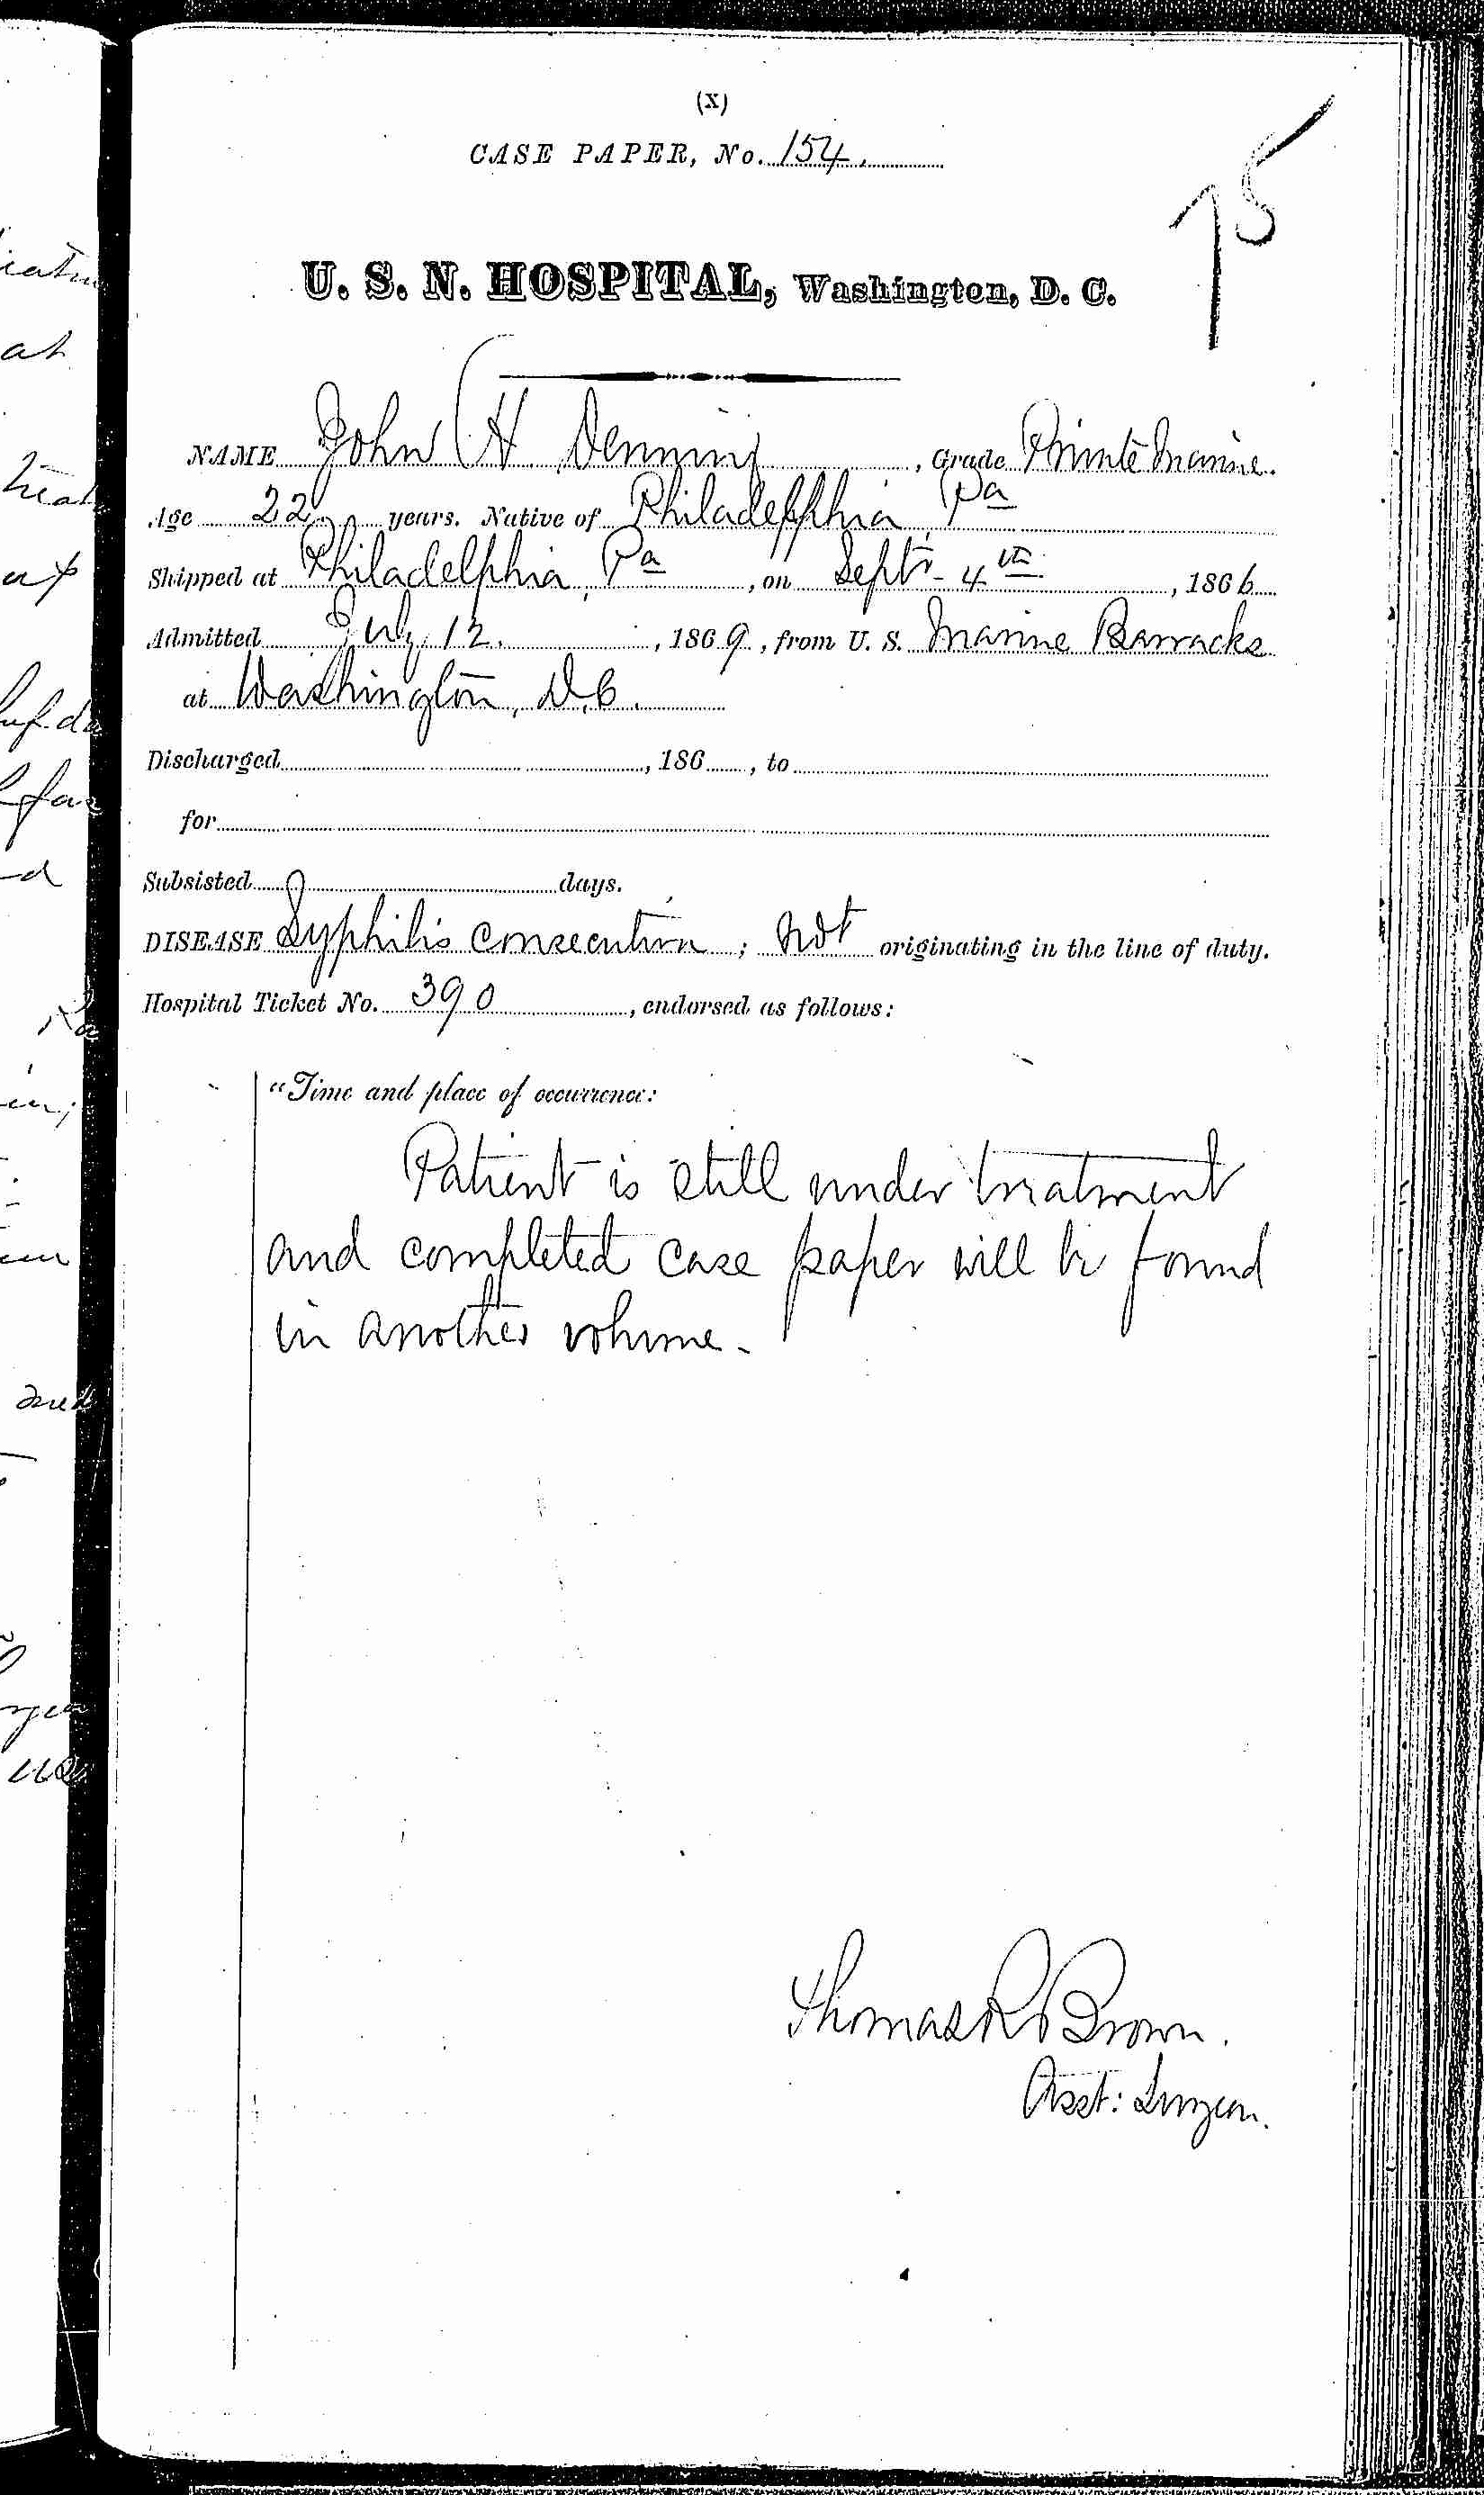 (X)
CASE PAPER, No. 154.
75
U. S. N. HOSPITAL, Washington, D. C.
NAME John H Denning, Grade Private Marine.
Age 22 years. Native of Philadelphia, Pa
Shipped at Philadelphia, Pa, on Septr. 4th, 1866
Admitted July 12., 1869, from U. S. Marine Barracks
at Washington, D.C.
Discharged, 186, to
for
Subsisted days.
DISEASE Syphilis consecutiva; Not originating in the line of duty.
Hospital Ticket No. 390, endorsed as follows:
"Time and place of occurrence:
Patient is still under treatment
and completed case paper will be found
in another volume.
Thomas R Brown.
Asst: Surgeon.